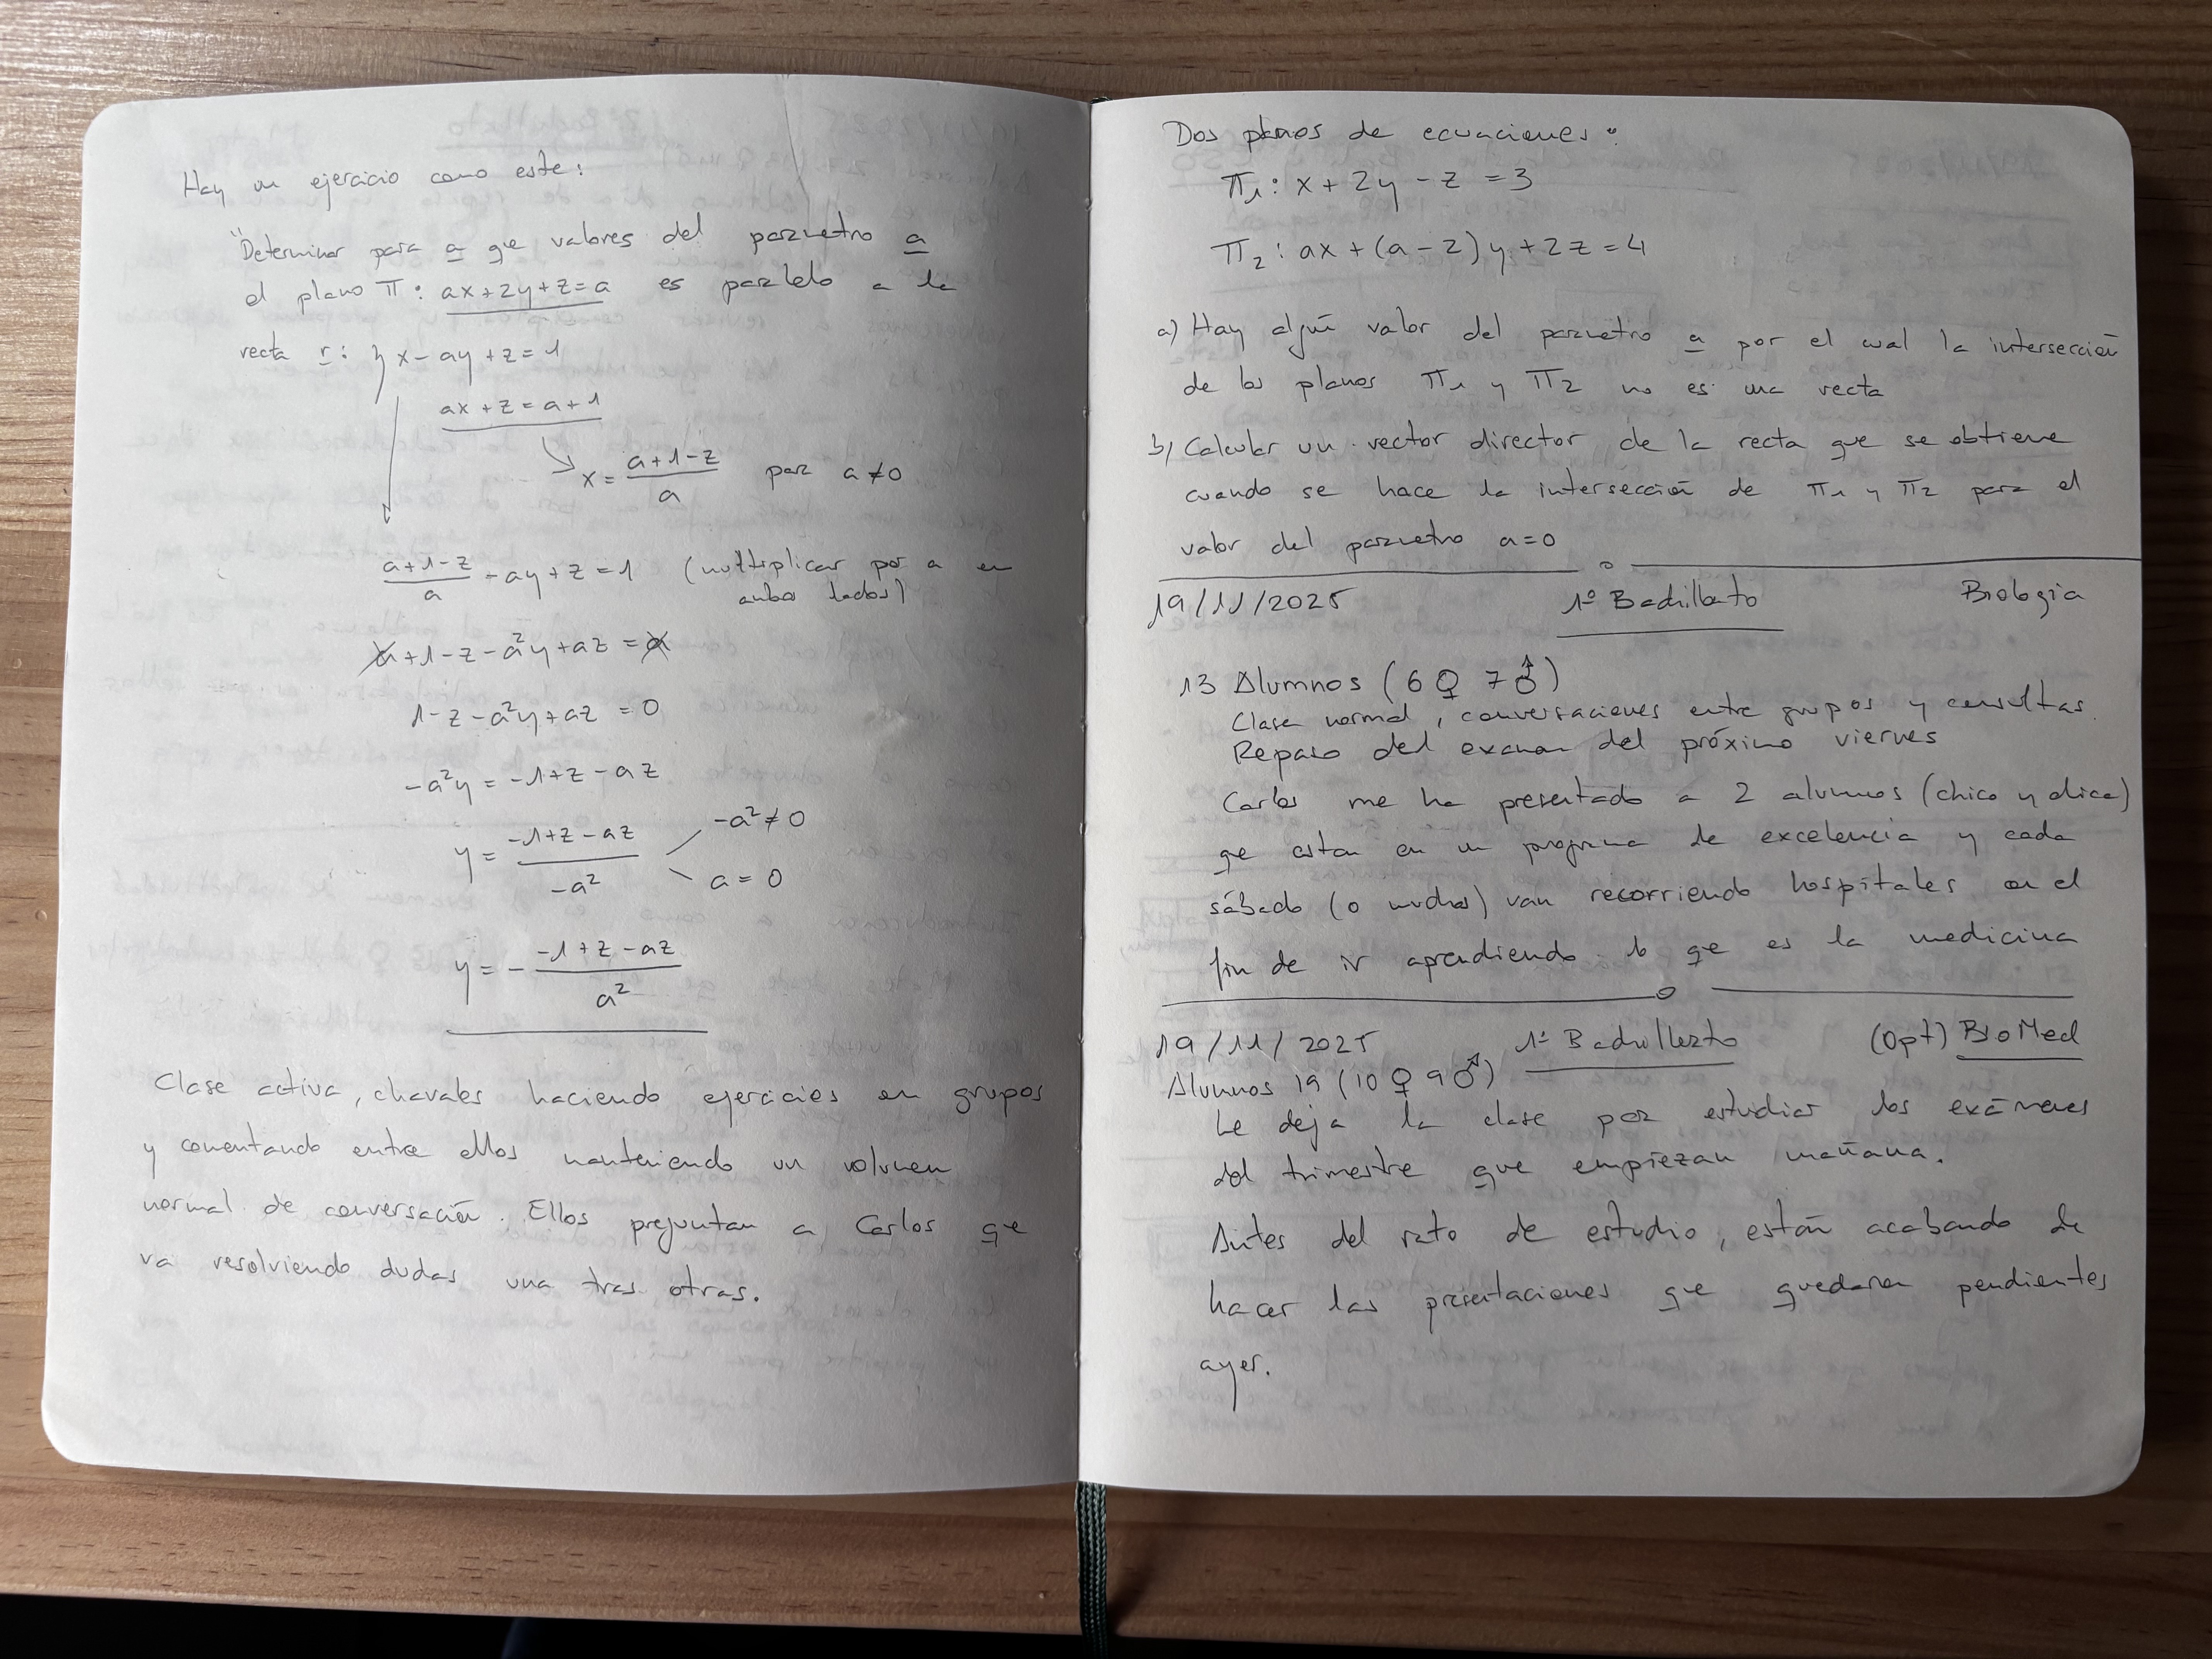 Hay un ejercicio como este:
"Determinar para a que valores del parametro a
el plano π: ax+2y+z=a es paralelo a la
recta r: { x-ay+z=1
ax+z=a+1
x = (a+1-z)/a para a≠0
(a+1-z)/a - ay+z=1 (multiplicar por a en
ambos lados)
a+1-z-a²y+az=a
1-z-a²y+az=0
-a²y=-1+z-az
y = (-1+z-az)/(-a²) -a²≠0
a=0
y = - (-1+z-az)/a²
Clase activa, chavales haciendo ejercicios en grupos
y comentando entre ellos manteniendo un volumen
normal de conversación. Ellos preguntan a Carlos que
va resolviendo dudas una tras otras.
Dos planos de ecuaciones:
π1: x+2y-z=3
π2: ax+(a-2)y+2z=4
a) Hay algún valor del parametro a por el cual la intersección
de los planos π1 y π2 no es una recta
b) Calcular un vector director de la recta que se obtiene
cuando se hace la intersección de π1 y π2 para el
valor del parametro a=0
19/11/2025 1º Bachillerato Biologia
13 Alumnos (6♀ 7♂)
Clase normal, conversaciones entre grupos y consultas.
Repaso del examen del próximo viernes
Carlos me ha presentado a 2 alumnos (chico y chica)
que estan en un programa de excelencia y cada
sábado (o muchos) van recorriendo hospitales en el
fin de ir aprendiendo lo que es la medicina
19/11/2025 1º Bachillerato (Opt) BioMed
Alumnos 19 (10♀ 9♂)
Le deja la clase para estudiar los exámenes
del trimestre que empiezan mañana.
Antes del rato de estudio, están acabando de
hacer las presentaciones que quedaron pendientes
ayer.